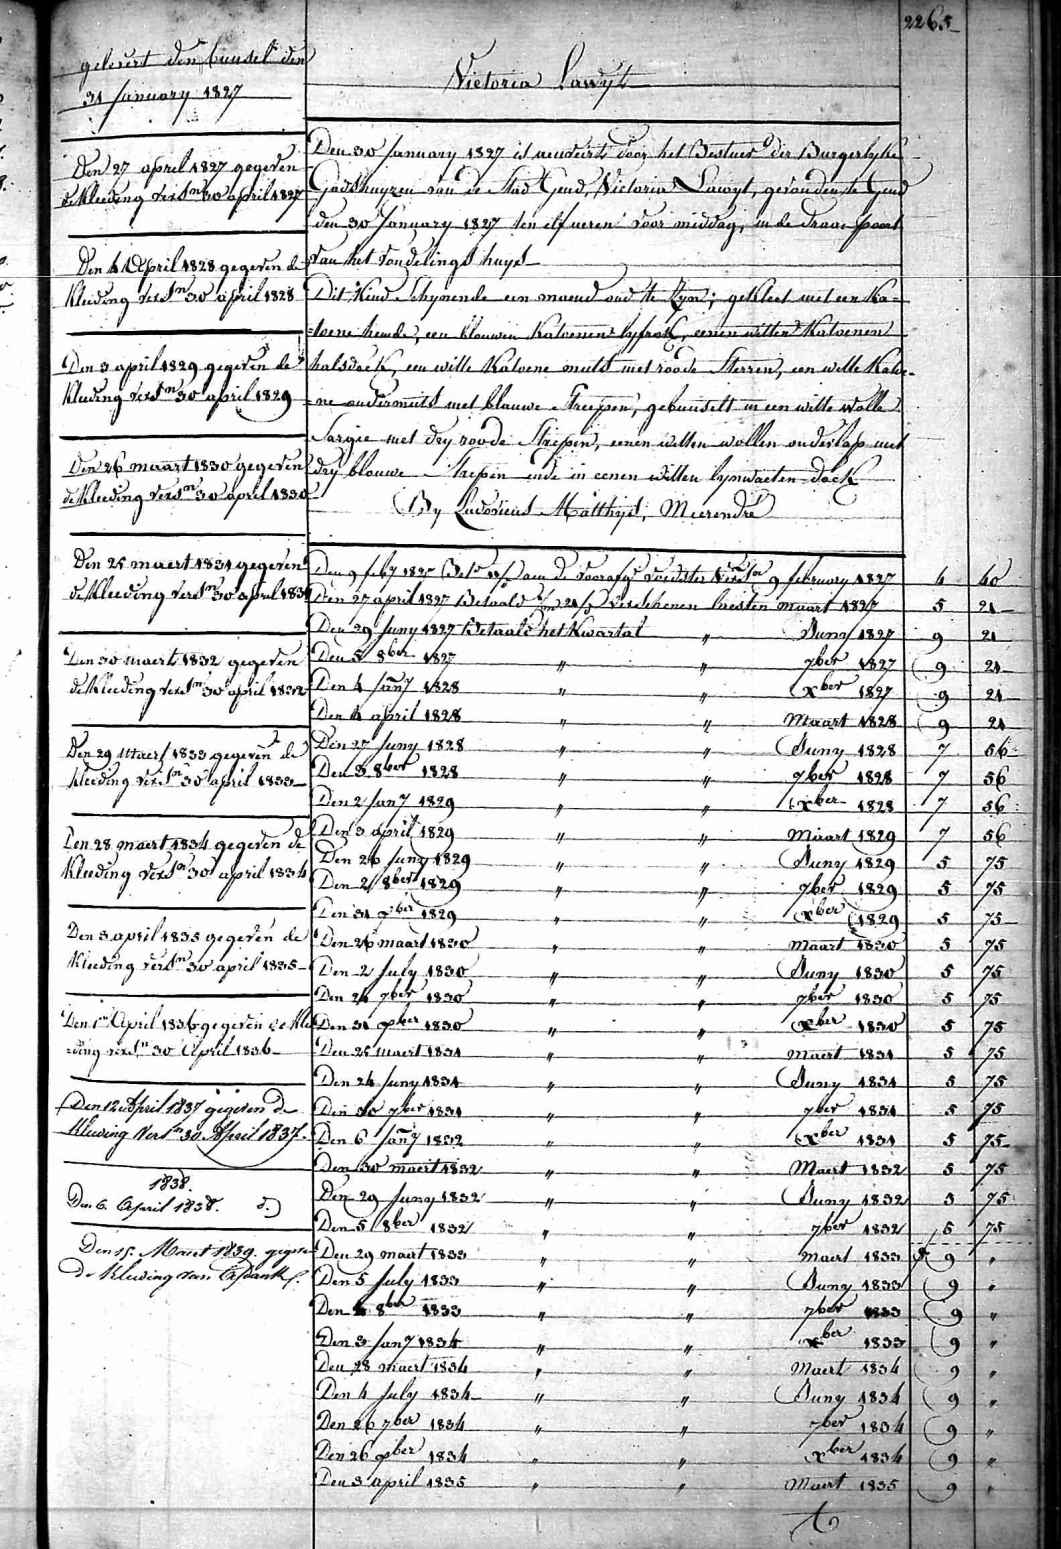 2265
gelevert den bunsel den
31 January 1827
Victoria Lawyt
Den 27 april 1827 gegeven
de Kleeding vers.n 30 april 1827
Den 4 April 1828 gegeven de
Kleeding vers.n 30 april 1828
Den 3 april 1829 gegeven de
Kleeding vers.n 30 april 1829
Den 26 maart 1830 gegeven
de Kleeding vers.n 30 april 1830
Den 25 maert 1831 gegeven
de Kleeding vers.n 30 april 1831
Den 30 maert 1832 gegeven
de Kleeding vers.n 30 april 1832
Den 29 Maert 1833 gegeven de
Kleeding vers.n 30 april 1833
Den 28 maert 1834 gegeven de
Kleeding vers.n 30 april 1834
Den 3 april 1835 gegeven de
Kleeding vers.n 30 april 1835
Den 1n April 1836 gegeven de Klee
=ding vers.n 30 April 1836
Den 12 April 1837 gegeven de
Kleeding vers.n 30 April 1837.
1838.
Den 6. April 1838. d.)
Den 15. Maart 1839. gegeven
de Kleeding van
Den 30 January 1827 is door het Bestuer der Burgerlyke
Godshuyzen van de Stad Gend, Victoria Lawyt, gevonden te Gend
den 30 January 1827 ten elf ueren voor middag, in de draae poort
van het vondelings huys
Dit Kind Schynende een maend oud te Zyn; gekleet met een Ka=
=toene hemde, een blouwen Katoenen lyfrok, eenen witten Katoenen
halsdoek, een witte Katoene muts met roode Sterren, een witte Katoe=
=ne ondermuts met blauwe Streepen, gebunselt in een witte wolle
Sargie met dry roode Strepen, eenen witten wollen onderlap met
dry blouwe Strepen ende in eenen witten lynwaeten doek
By Ludovicus Matthys, Meerendre
Den 9 feby 1827 aen de voedster 9 february 1827 4 40
Den 27 april 1827 Betaald verschenen maart 1827 5 21
Den 29 Juny 1827 Betaald het Kwartal " Juny 1827 9 21
Den 5 8ber 1827 " " 7ber 1827 9 21
Den 4 Jany 1828 " " Xber 1827 9 21
Den 4 april 1828 " " Maart 1828 9 21
Den 27 Juny 1828 " " Juny 1828 7 56
Den 3 8ber 1828 " " 7ber 1828 7 56
Den 2 Jany 1829 " " Xber 1828 7 56
Den 3 april 1829 " " Maart 1829 7 56
Den 26 Juny 1829 " " Juny 1829 5 75
Den 2 8ber 1829 " " 7ber 1829 5 75
Den 31 xber 1829 " " Xber 1829 5 75
Den 26 maart 1830 " " Maart 1830 5 75
Den 2 July 1830 " " Juny 1830 5 75
Den 24 7ber 1830 " " 7ber 1830 5 75
Den 31 xber 1830 " " Xber 1830 5 75
Den 25 maert 1831 " " maert 1831 5 75
Den 24 Juny 1831 " " Juny 1831 5 75
Den 30 7ber 1831 " " 7ber 1831 5 75
Den 6 Jany 1832 " " Xber 1831 5 75
Den 30 maert 1832 " " Maert 1832 5 75
Den 29 Juny 1832 " " Juny 1832 5 75
Den 5 8ber 1832 " " 7ber 1832 5 75
Den 29 maart 1833 " " maert 1833 9 "
Den 5 July 1833 " " Juny 1833 9 "
Den 4 8ber 1833 " " 7ber 1833 9 "
Den 3 Jany 1834 " " Xber 1833 9 "
Den 28 maert 1834 " " Maert 1834 9 "
Den 4 July 1834 " " Juny 1834 9 "
Den 26 7ber 1834 " " 7ber 1834 9 "
Den 26 xber 1834 " " Xber 1834 9 "
Den 3 april 1835 " " Maert 1835 9 "